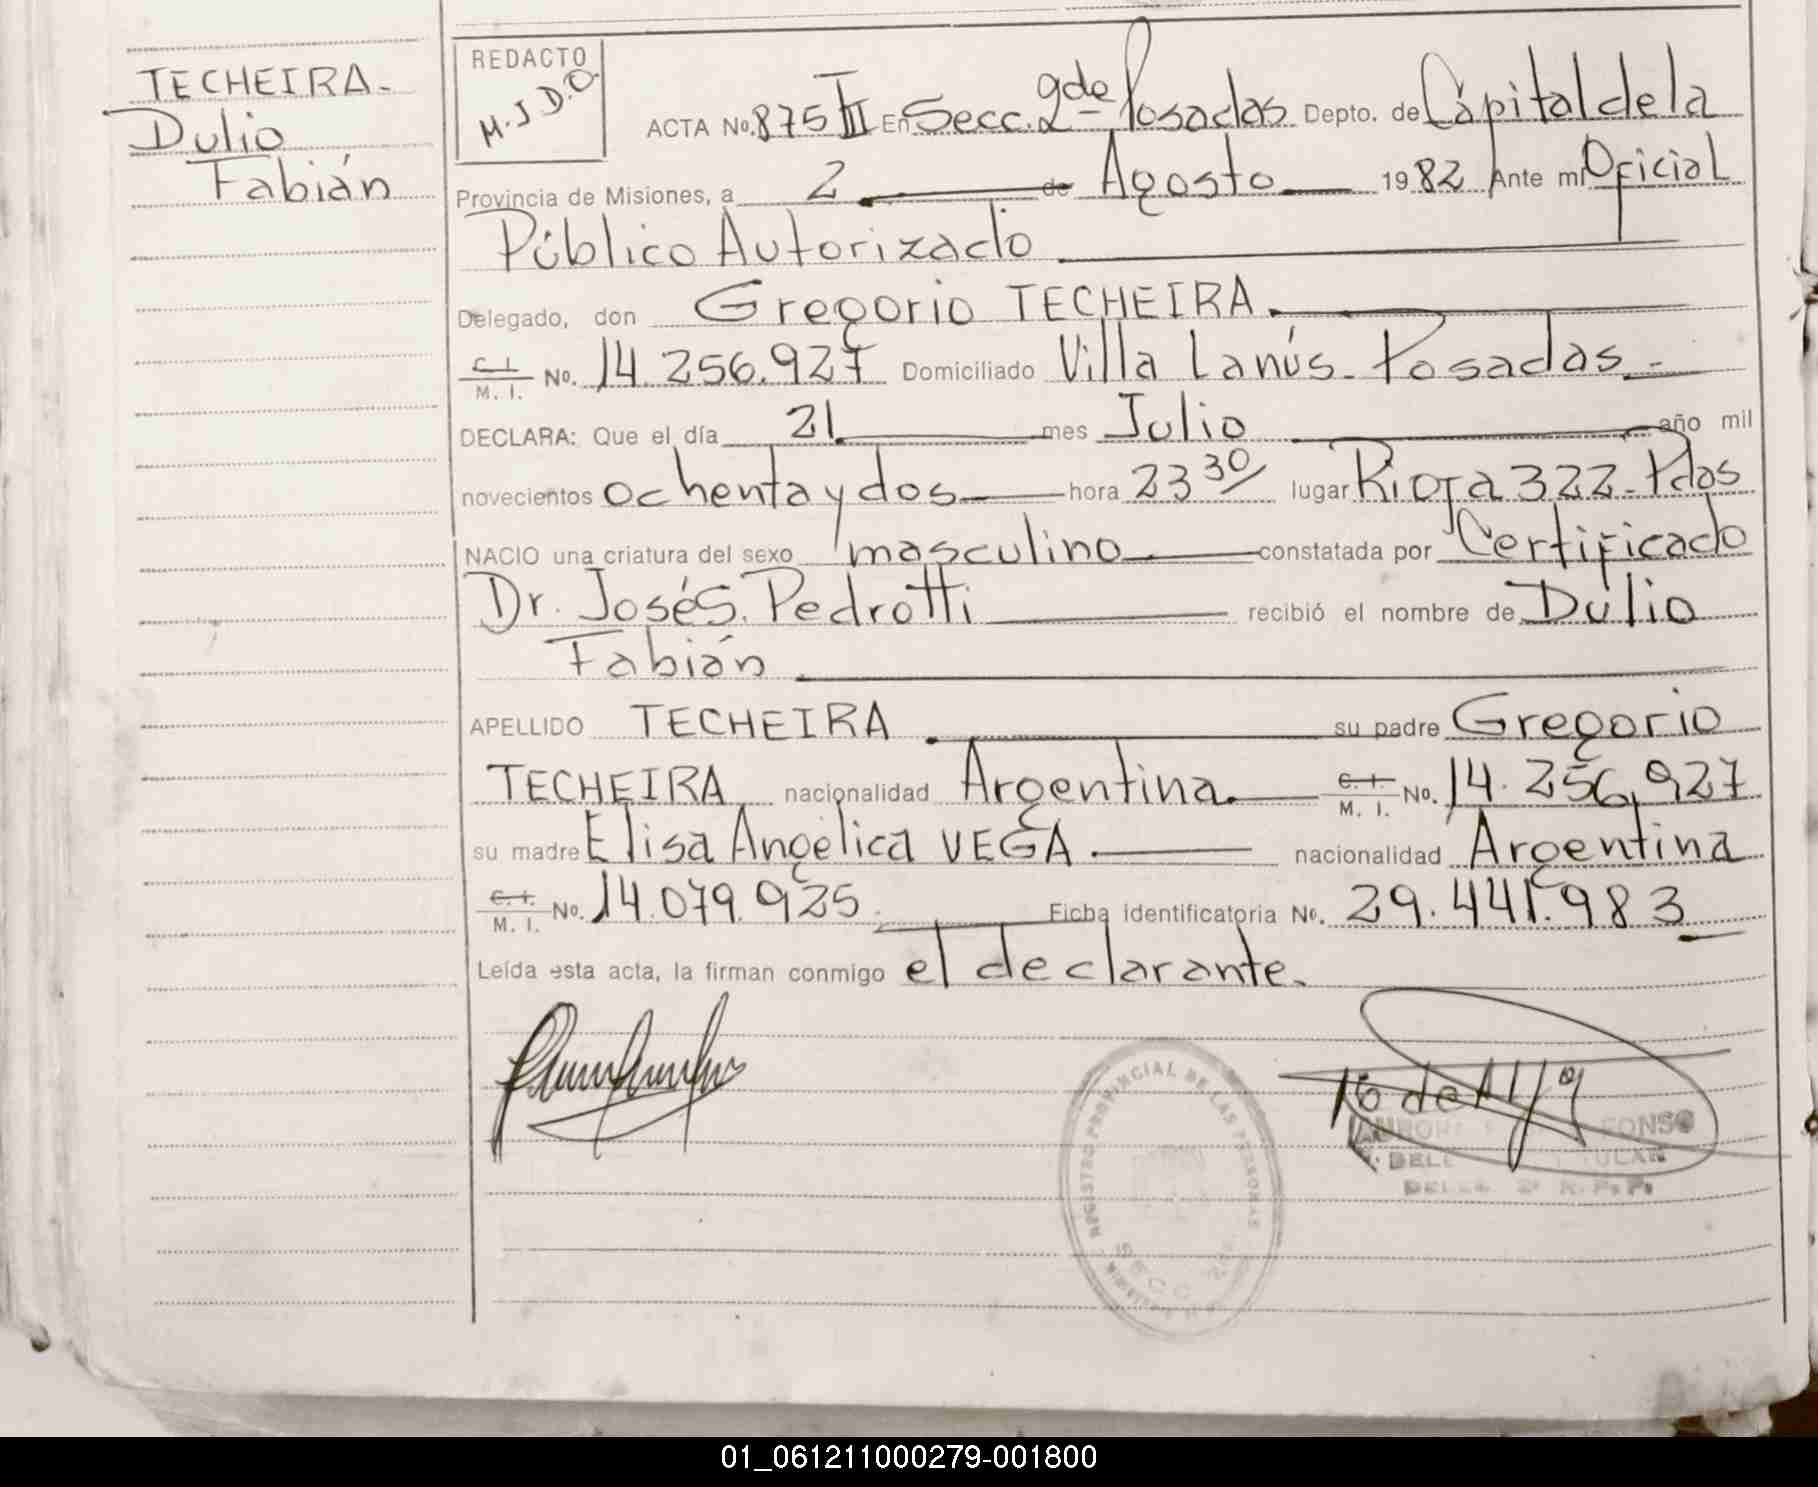 TECHEIRA.
Dulio
Fabián
REDACTO
M.J D.O.
ACTA No. 875 TIII En Secc. 2da Posadas Depto. de Capital de la
Provincia de Misiones, a 2 de Agosto 1982 Ante mi Oficial
Público Autorizado
Delegado, don Gregorio TECHEIRA.
C. I. / M. I. No. 14.256.927 Domiciliado Villa Lanús - Posadas.-
DECLARA: Que el día 21 mes Julio año mil
novecientos ochenta y dos hora 23 30 lugar Rioja 322 - Pdas
NACIO una criatura del sexo masculino constatada por Certificado
Dr. José S. Pedrotti recibió el nombre de Dulio
Fabián
APELLIDO TECHEIRA su padre Gregorio
TECHEIRA nacionalidad Argentina. C. I. / M. I. No. 14.256.927
su madre Elisa Angélica VEGA nacionalidad Argentina
C. I. / M. I. No. 14.079.925 Ficha identificatoria No. 29.441.983
Leída esta acta, la firman conmigo el declarante.
REGISTRO PROVINCIAL DE LAS PERSONAS
SECC.
FONSO
DELE
01_061211000279-001800